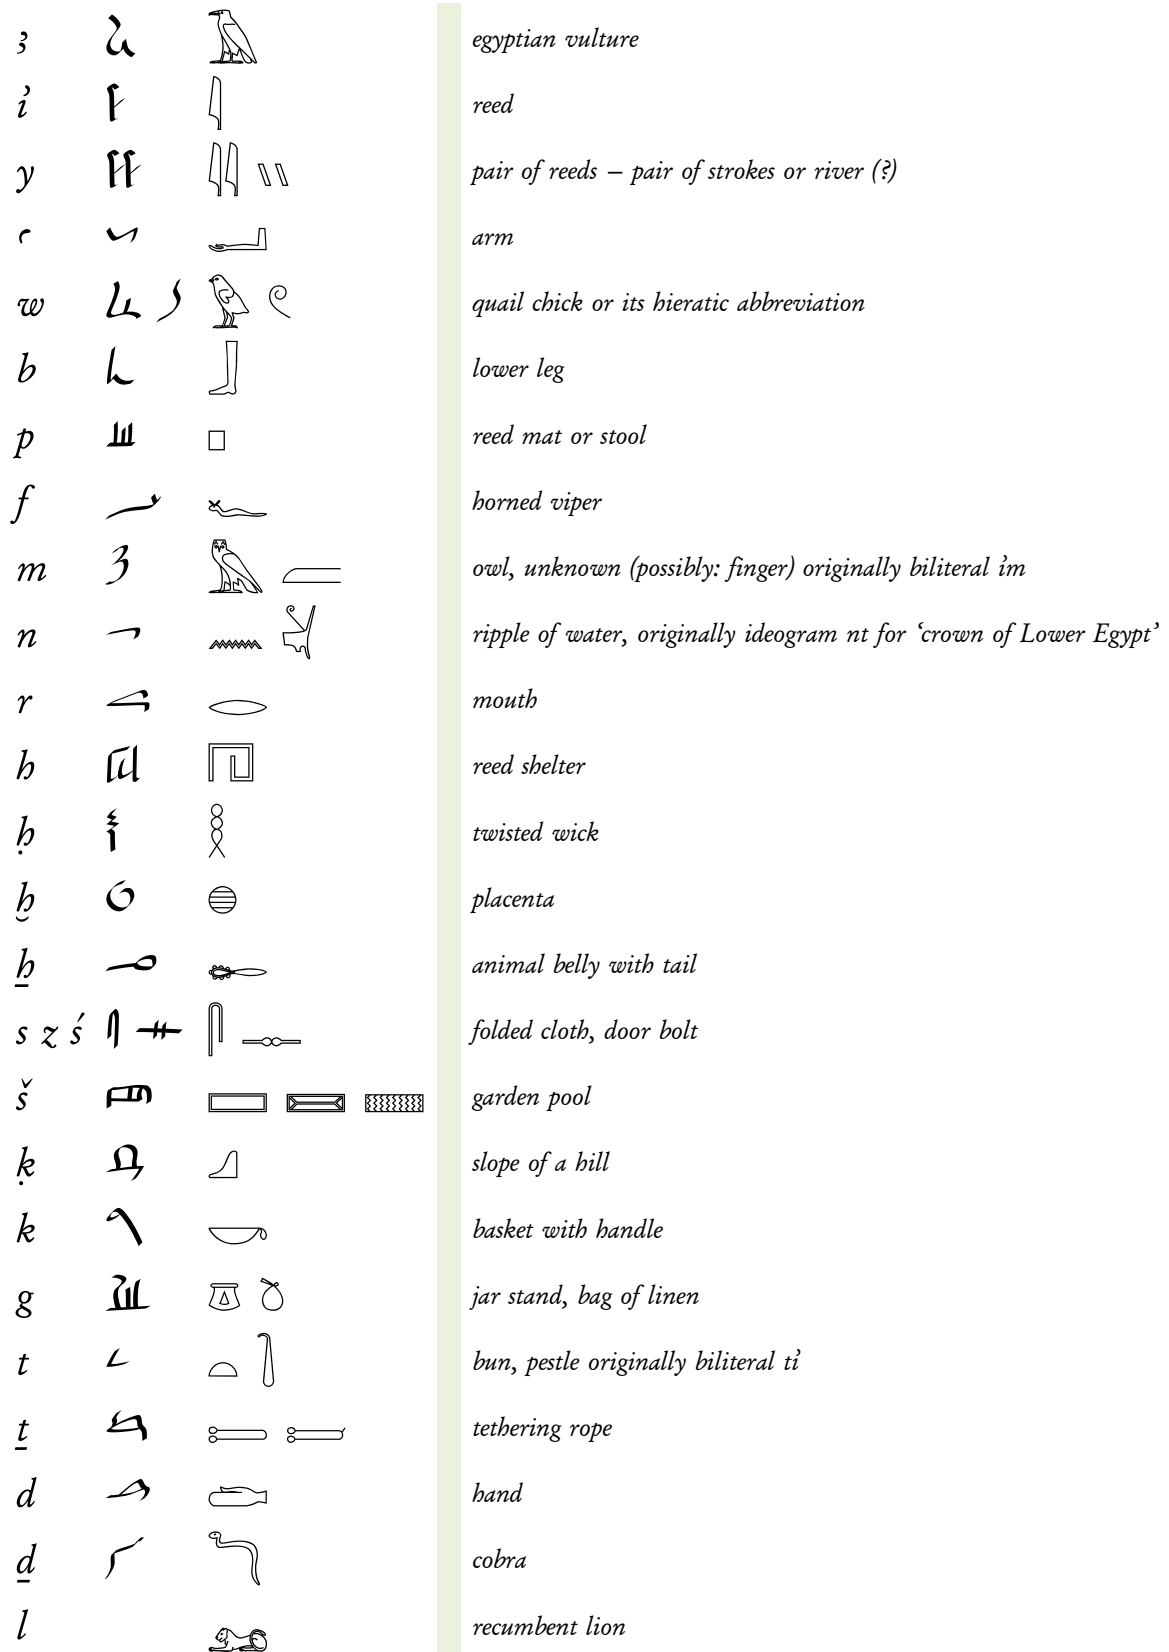 ꜣ 𓄿 egyptian vulture
ı͗ 𓇋 reed
y 𓇌 𓏭 pair of reeds – pair of strokes or river (?)
ꜥ 𓂝 arm
w 𓅱 𓏲 quail chick or its hieratic abbreviation
b 𓃀 lower leg
p 𓊪 reed mat or stool
f 𓆑 horned viper
m 𓅓 𓐝 owl, unknown (possibly: finger) originally biliteral ı͗m
n 𓈖 𓋔 ripple of water, originally ideogram nt for ‘crown of Lower Egypt’
r 𓂋 mouth
h 𓉔 reed shelter
ḥ 𓎛 twisted wick
ḫ 𓐍 placenta
ẖ 𓄡 animal belly with tail
s z ś 𓋴 𓊃 folded cloth, door bolt
š 𓈙 𓈚 𓈛 garden pool
ḳ 𓈎 slope of a hill
k 𓎡 basket with handle
g 𓎼 𓎤 jar stand, bag of linen
t 𓏏 𓍘 bun, pestle originally biliteral tı͗
ṯ 𓍿 𓎀 tethering rope
d 𓂧 hand
ḏ 𓆓 cobra
l 𓃭 recumbent lion